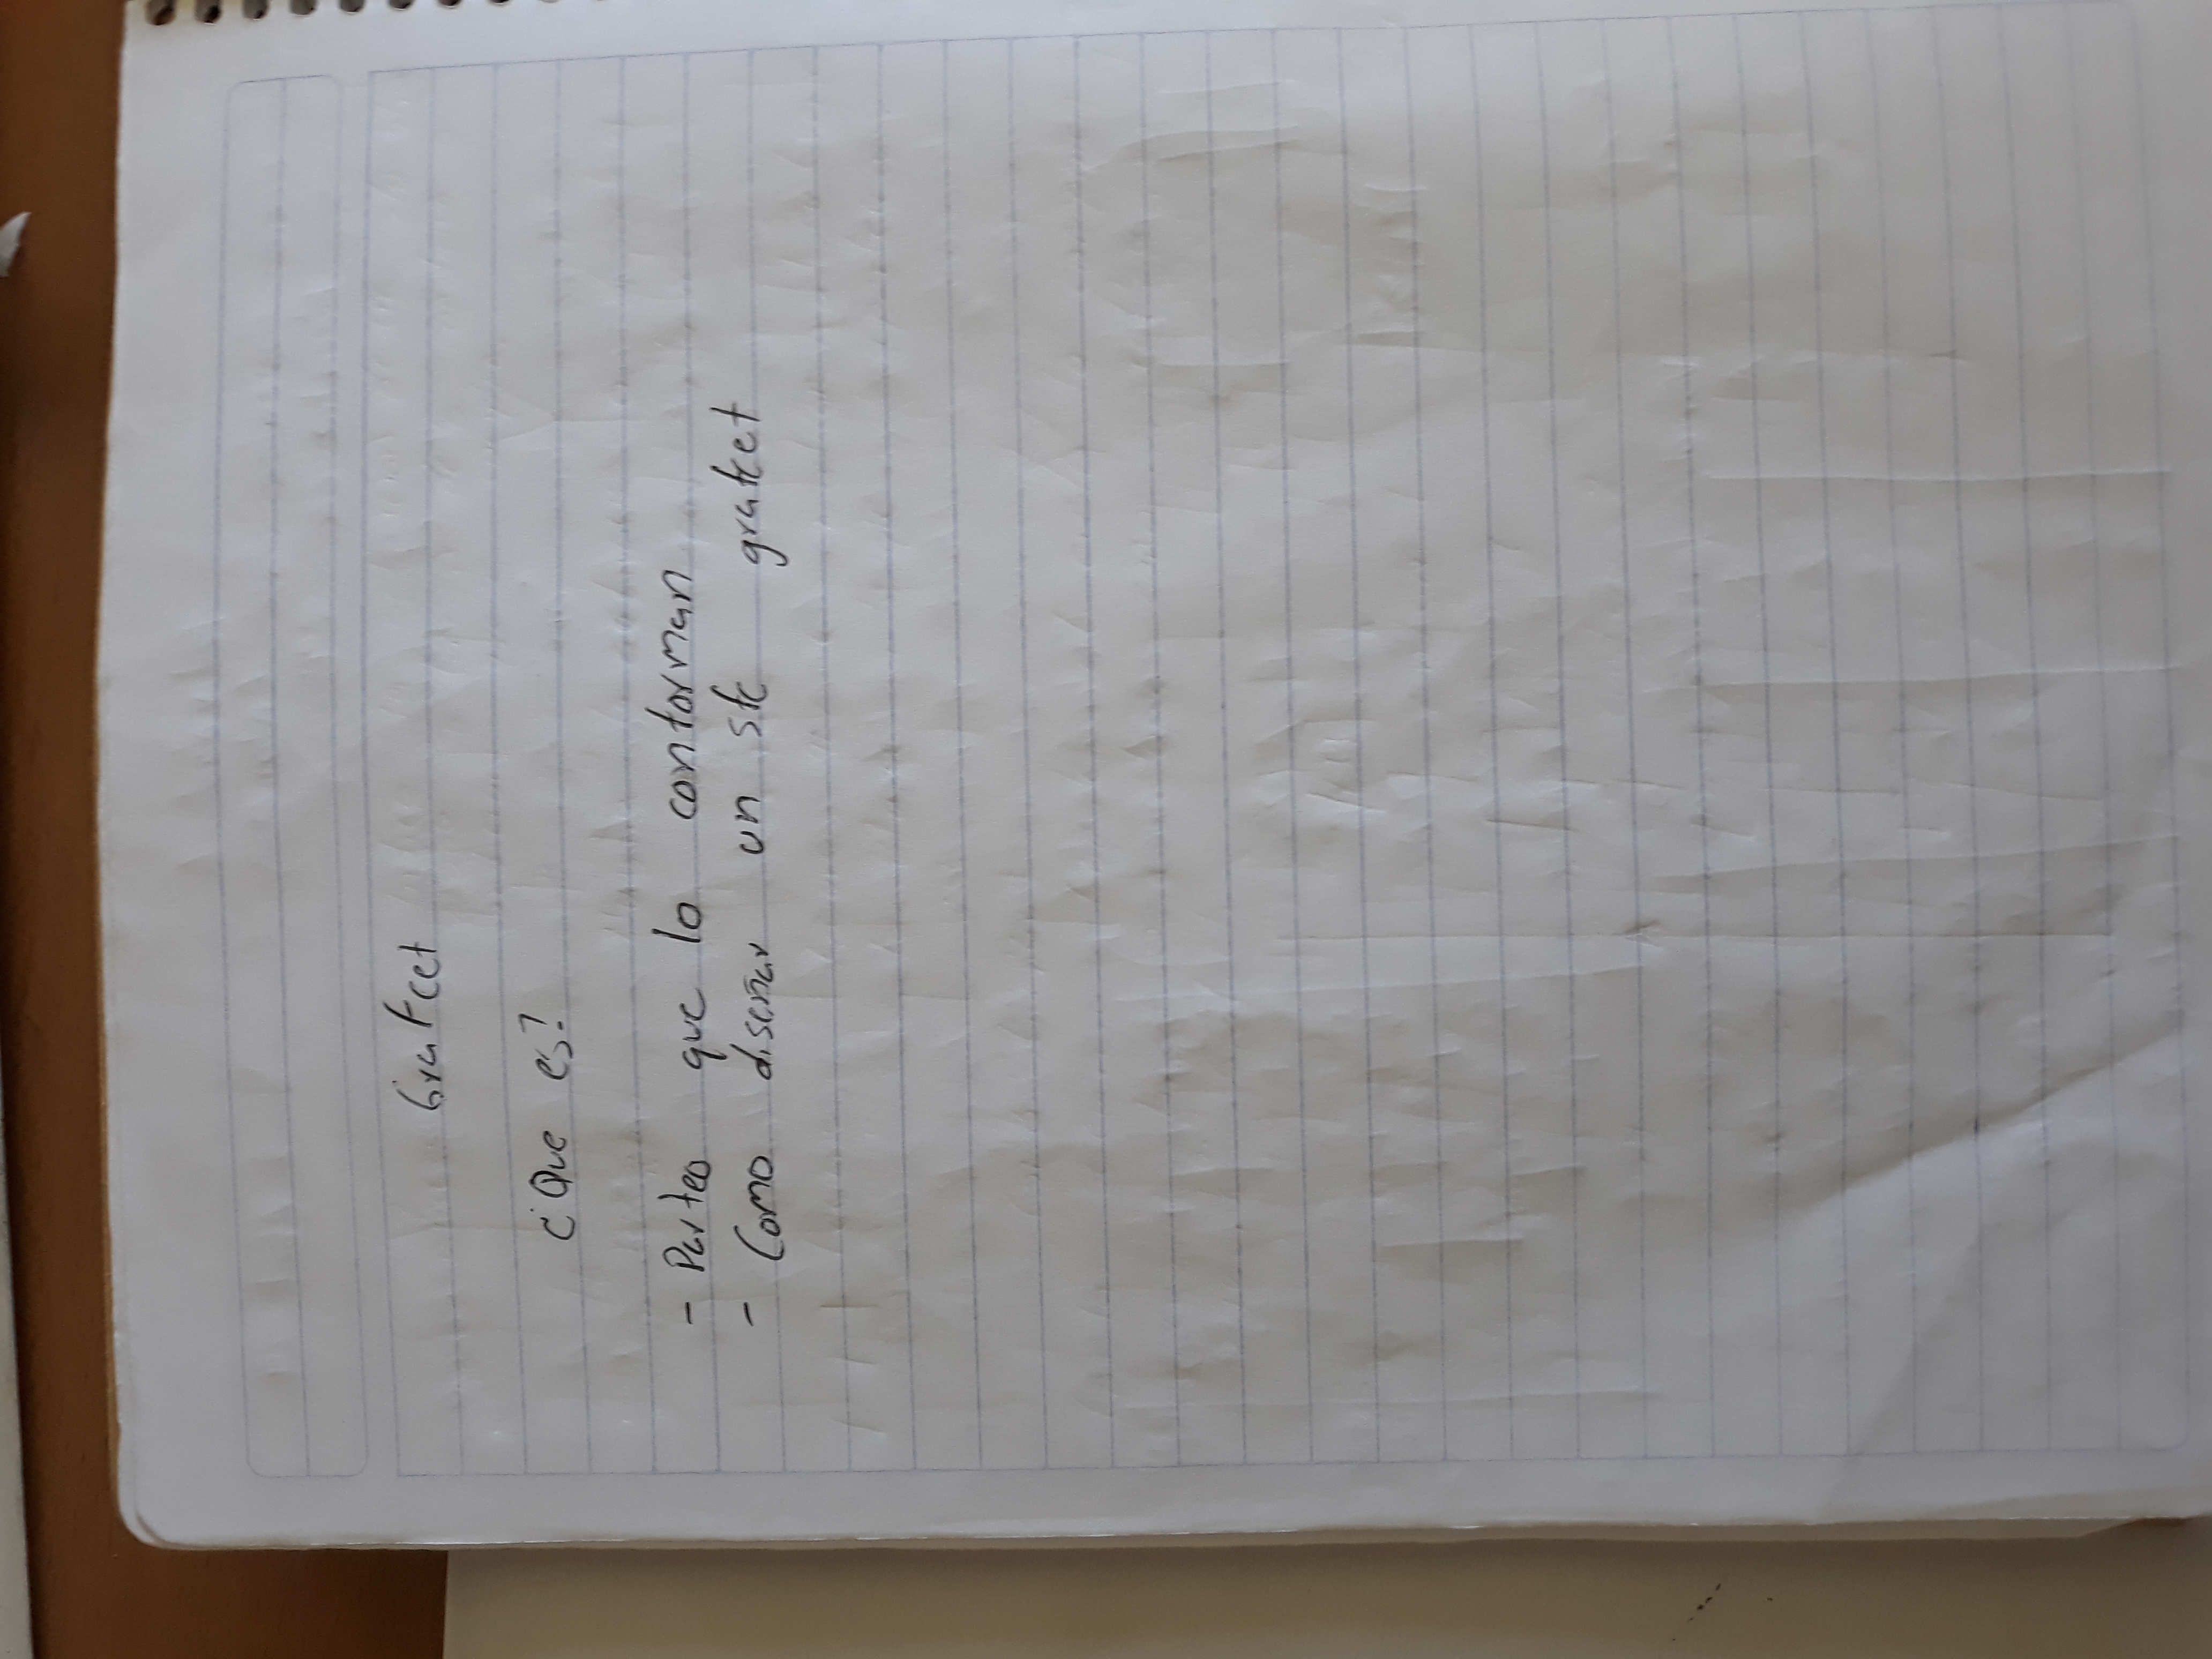 Grafcet
¿Que es?
- Partes que lo conforman
- Como diseñar un sfc grafcet